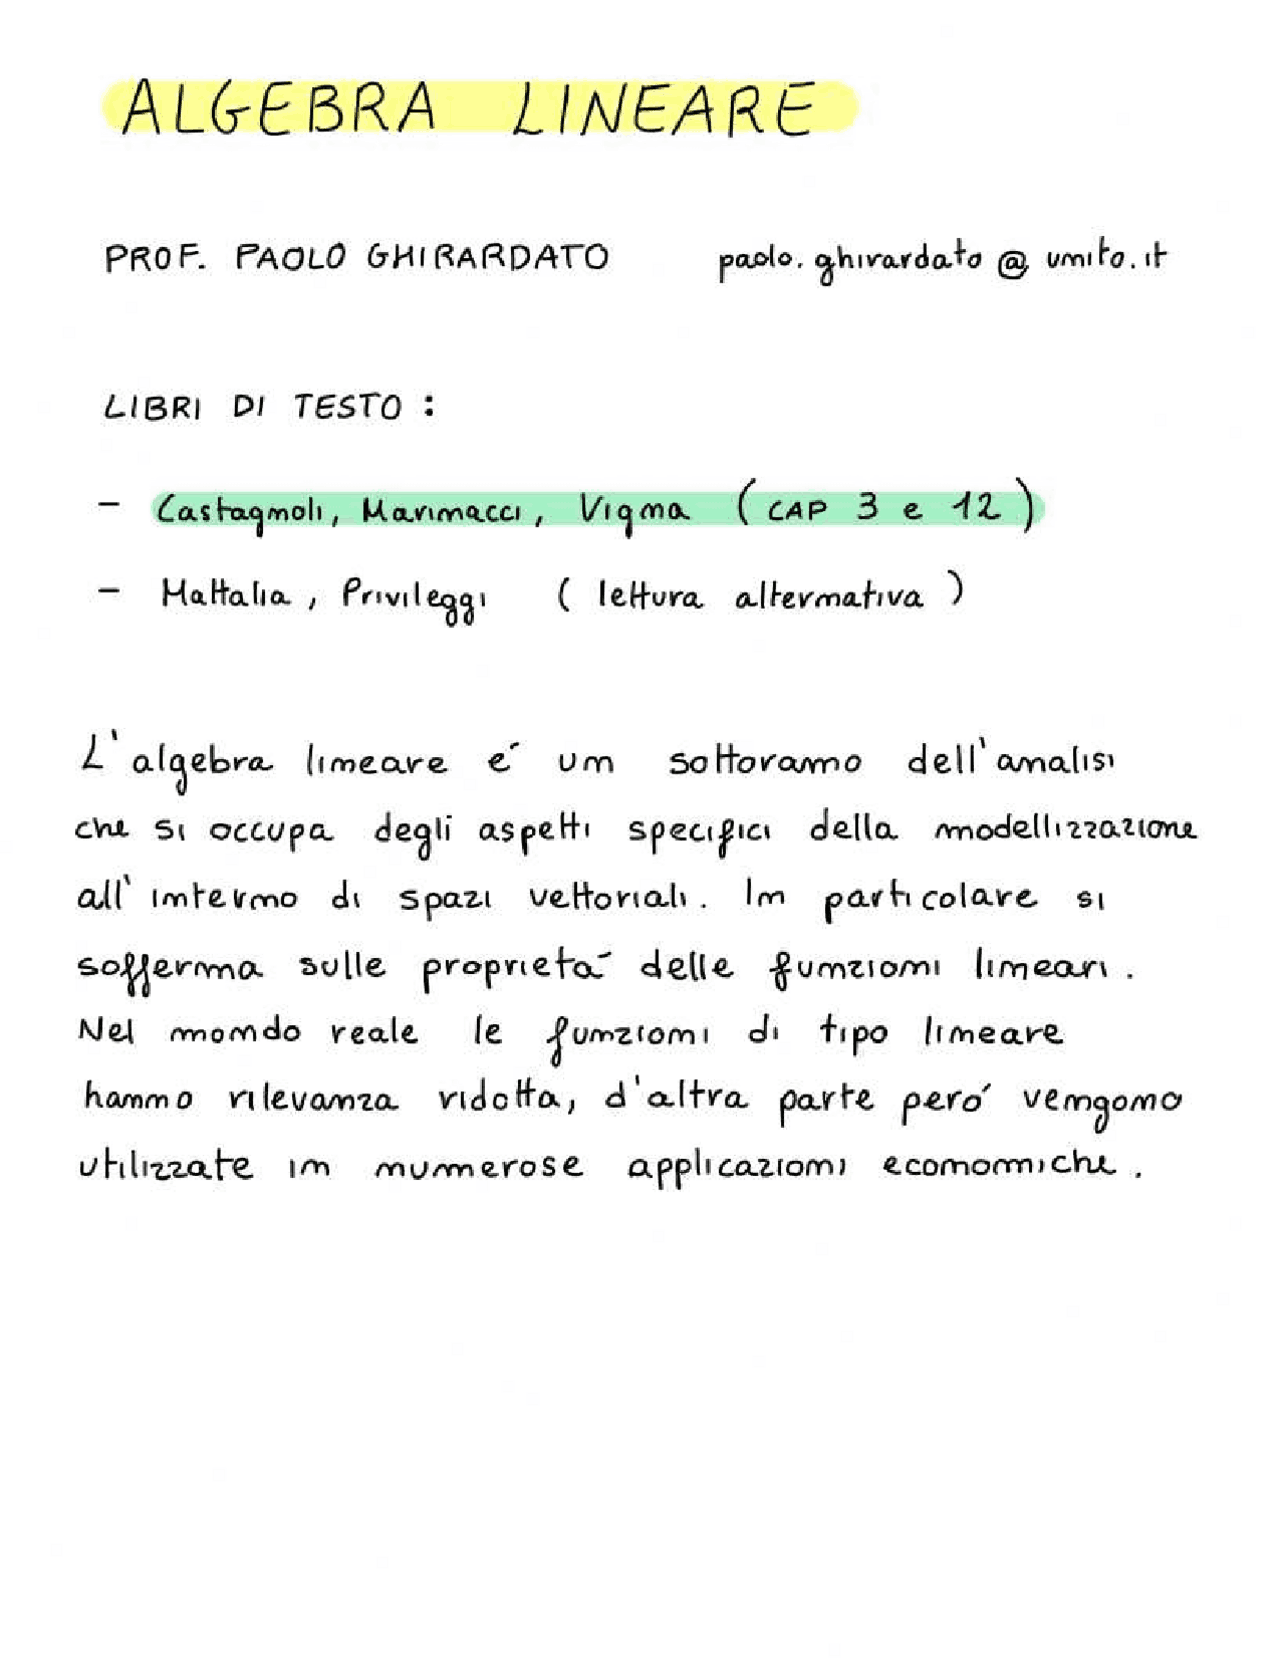 ALGEBRA LINEARE
PROF. PAOLO GHIRARDATO paolo.ghirardato@unito.it
LIBRI DI TESTO :
- Castagnoli, Marinacci, Vigna (CAP 3 e 12)
- Mattalia, Privileggi (lettura alternativa)
L'algebra lineare é un sottoramo dell'analisi
che si occupa degli aspetti specifici della modellizzazione
all'interno di spazi vettoriali. In particolare si
sofferma sulle proprietà delle funzioni lineari.
Nel mondo reale le funzioni di tipo lineare
hanno rilevanza ridotta, d'altra parte peró vengono
utilizzate in numerose applicazioni economiche.